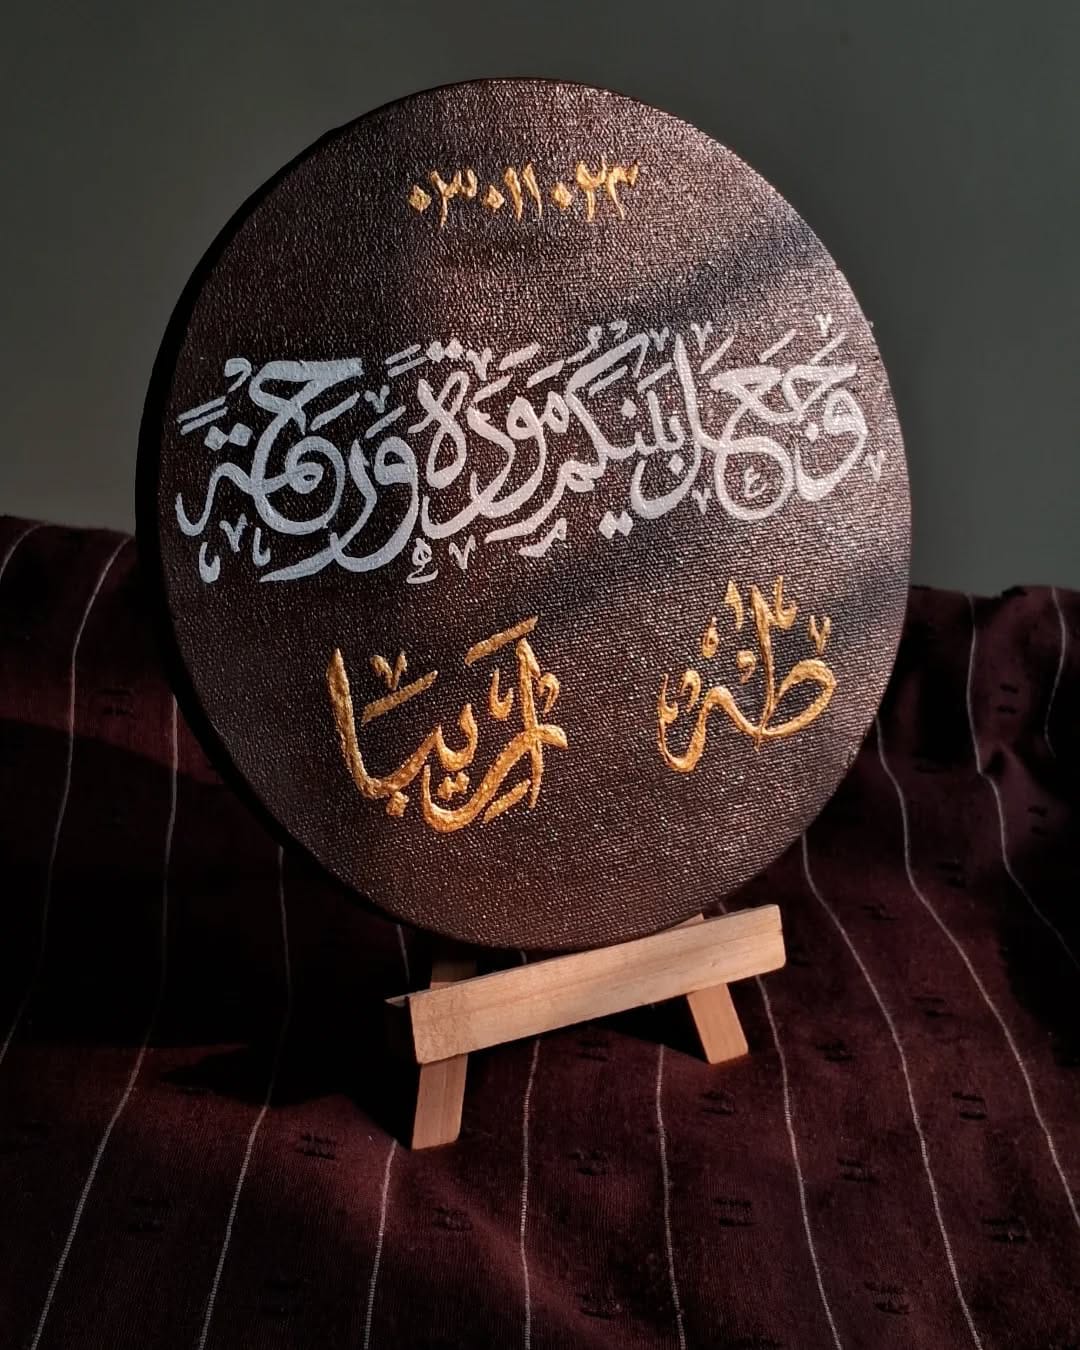 ٠٣٠١١٠٢٣
وَجَعَلَ بَيْنَكُم مَوَدَّةً وَرَحْمَةً
طٰهٰ اَرِیبَا